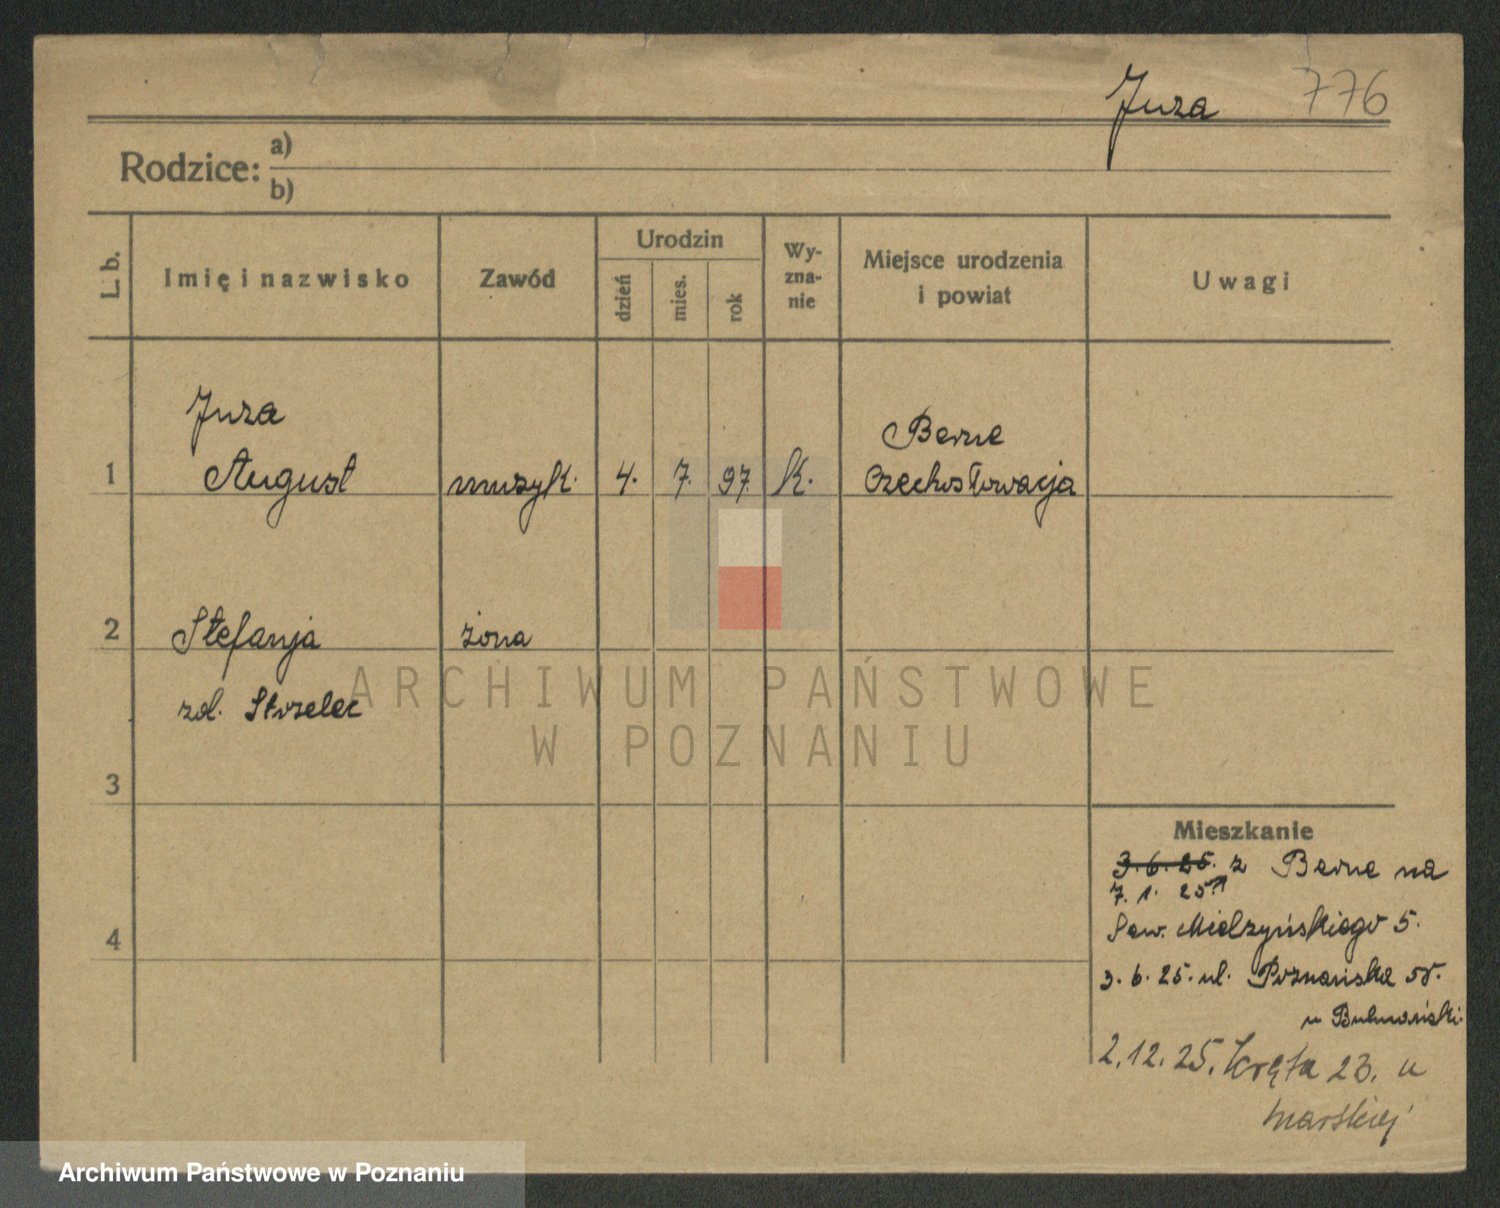 Juza 776
Rodzice: a)
b)
L. b. Imię i nazwisko Zawód Urodzin dzień mies. rok Wy-zna-nie Miejsce urodzenia i powiat Uwagi
Juza Berne
1 August muzyk. 4. 7. 97. k. Czechosłowacja
2 Stefanja żona
zd. Strzelec
3
4
Mieszkanie
3.6.25. z Berne na
7. 1. 25
Sew. Mielżyńskiego 5.
3. 6. 25. ul. Poznańska
u
2.12.25. Kręta 23. u
ARCHIWUM PAŃSTWOWE
W POZNANIU
Archiwum Państwowe w Poznaniu